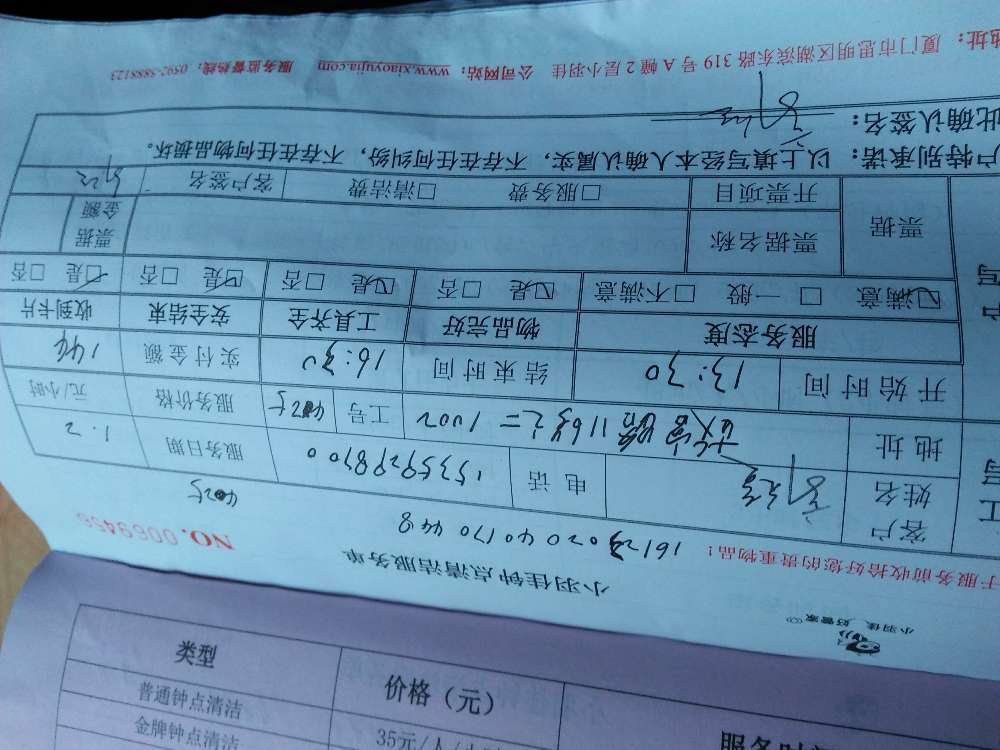 小羽佳，好管家
小羽佳钟点清洁服务单
NO.0069456
于服务前收拾好您的贵重物品！
1612 020 40170 448
4025
客户姓名
电话 15359298700
服务日期 1.2
地址 116号之二 1002
工号 4025
服务价格 元/小时
开始时间 13:30
结束时间 16:30
实付金额 144
服务态度 物品完好 工具齐全 安全结束 收到卡片
☑满意 □一般 □不满意 ☑是 □否 ☑是 □否 ☑是 □否 ☑是 □否
票据 票据名称 票据金额
开票项目 □服务费 □清洁费 客户签名
户特别承诺：以上填写经本人确认属实，不存在任何纠纷，不存在任何物品损坏。
此确认签名：
地址：厦门市思明区湖滨东路319号A幢2层小羽佳 公司网站：www.xiaoyujia.com 服务监督热线：0592-5888123
类型 价格（元） 服务时
普通钟点清洁 35元/人/小时
金牌钟点清洁